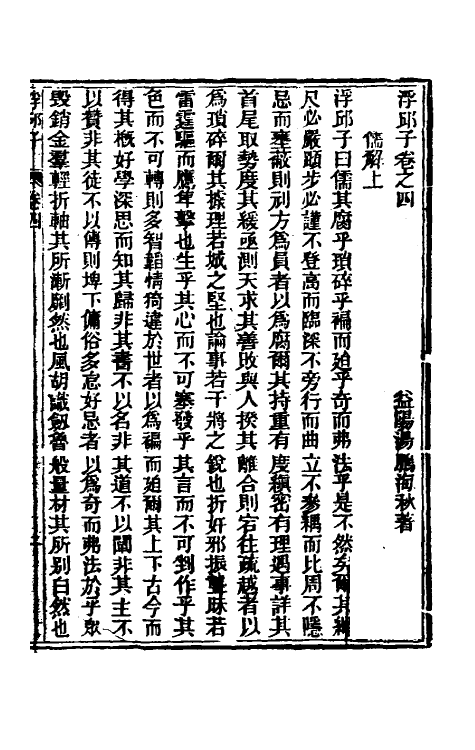 浮邱子卷之四
益陽湯鵬海秋著
儒解上
浮邱子曰儒其腐乎瑣碎乎褊而廹乎奇而弗法乎是不然矣爾其繩
尺必嚴蹞步必謹不登高而臨深不旁行而曲立不參耦而比周不隱
忌而壅蔽則刓方為員者以為腐爾其持重有度縝密有理遇事詳其
首尾取勢度其緩亟測天求其善敗與人揆其離合則宕往疏越者以
為瑣碎爾其據理若城之堅也論事若干將之銳也折奸邪振聾昧若
雷霆驅而鷹隼擊也生乎其心而不可塞發乎其言而不可剉作乎其
色而不可轉則多智韜情猗違於世者以為褊而廹爾其上下古今而
得其概好學深思而知其歸非其書不以名非其道不以闡非其主不
以贊非其徒不以傳則埤下傭俗多怠好忌者以為奇而弗法於乎眾
毀銷金羣輕折軸其所漸劘然也風胡識劔魯般量材其所别白然也
浮邱子 卷四